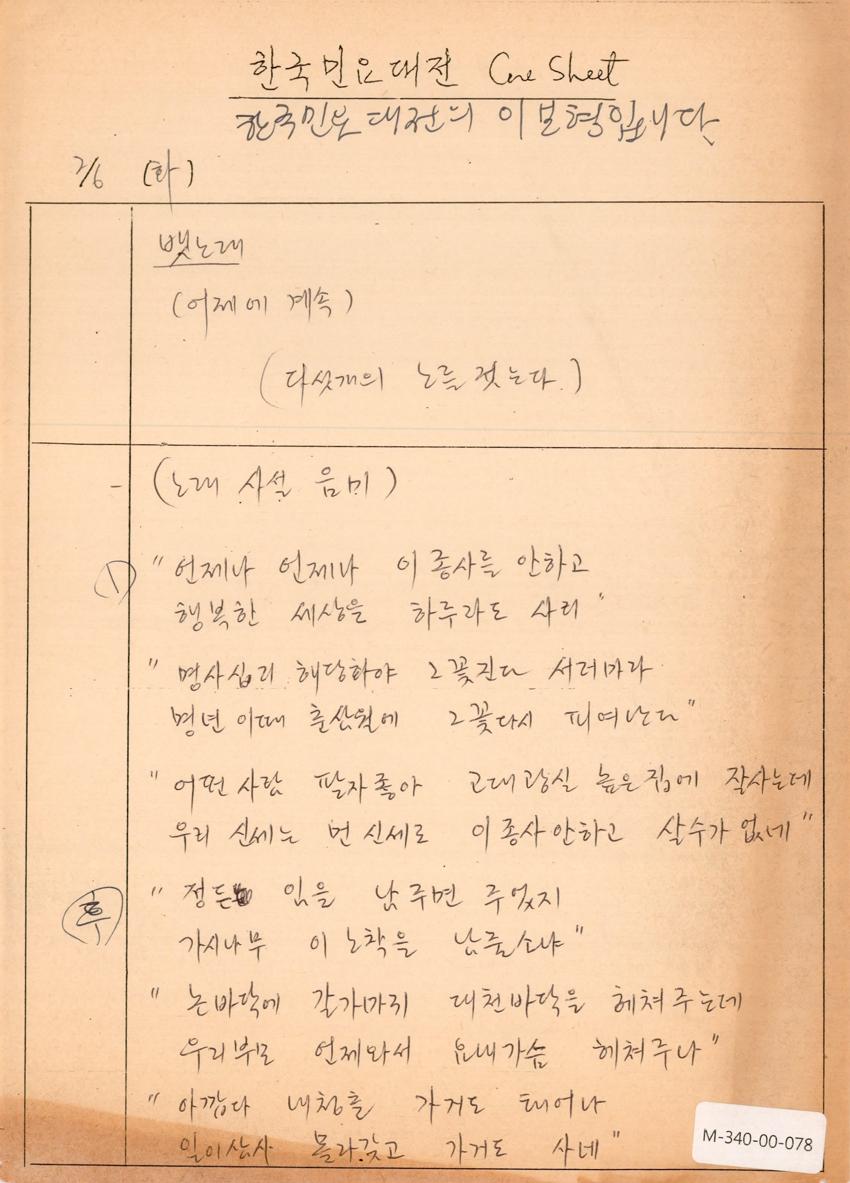 한국민요대전 Cue Sheet
한국민요대전의 이보형입니다
2/6 (화)
뱃노래
(어제에 계속)
(다섯개의 노를 젓는다.)
- (노래 사설 음미)
① " 언제나 언제나 이 종사를 안하고
행복한 세상을 하루라도 사리 "
" 명사십리 해당화야 그꽃진다 서러마라
명년 이때 춘삼월에 그꽃다시 피여난다 "
" 어떤 사람 팔자좋아 고대광실 높은집에 잘사는데
우리 신세는 먼 신세로 이종사안하고 살수가 없네 "
" 정든 임을 남주면 주었지
가시나무 이 노착을 남줄소냐 "
" 논바닥에 갈가마귀 대천바닥을 헤쳐주는데
우리부모 언제와서 요내가슴 헤쳐주나 "
" 아깝다 내청춘 가거도 태어나
일이삼사 몰라갖고 가거도 사네 "
M-340-00-078